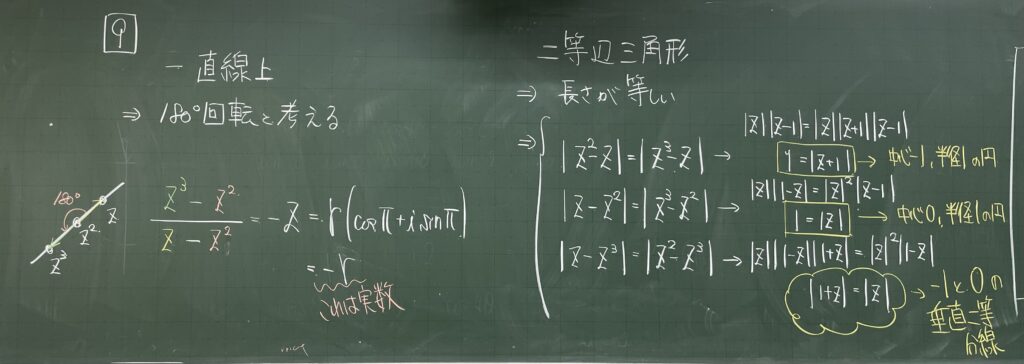 9
一直線上
⇒ 180°回転と考える
180°
Z
Z²
Z³
(Z³ - Z²)/(Z - Z²) = -Z = r(cosπ + i sinπ)
= -r
これは実数
二等辺三角形
⇒ 長さが等しい
⇒ { |Z²-Z| = |Z³-Z| → |Z||Z-1| = |Z||Z+1||Z-1|
1 = |Z+1| → 中心-1, 半径1の円
|Z-Z²| = |Z³-Z²| → |Z||1-Z| = |Z|²|Z-1|
1 = |Z| → 中心0, 半径1の円
|Z-Z³| = |Z²-Z³| → |Z||1-Z||1+Z| = |Z|²|1-Z|
|1+Z| = |Z| → -1と0の
垂直二等
分線